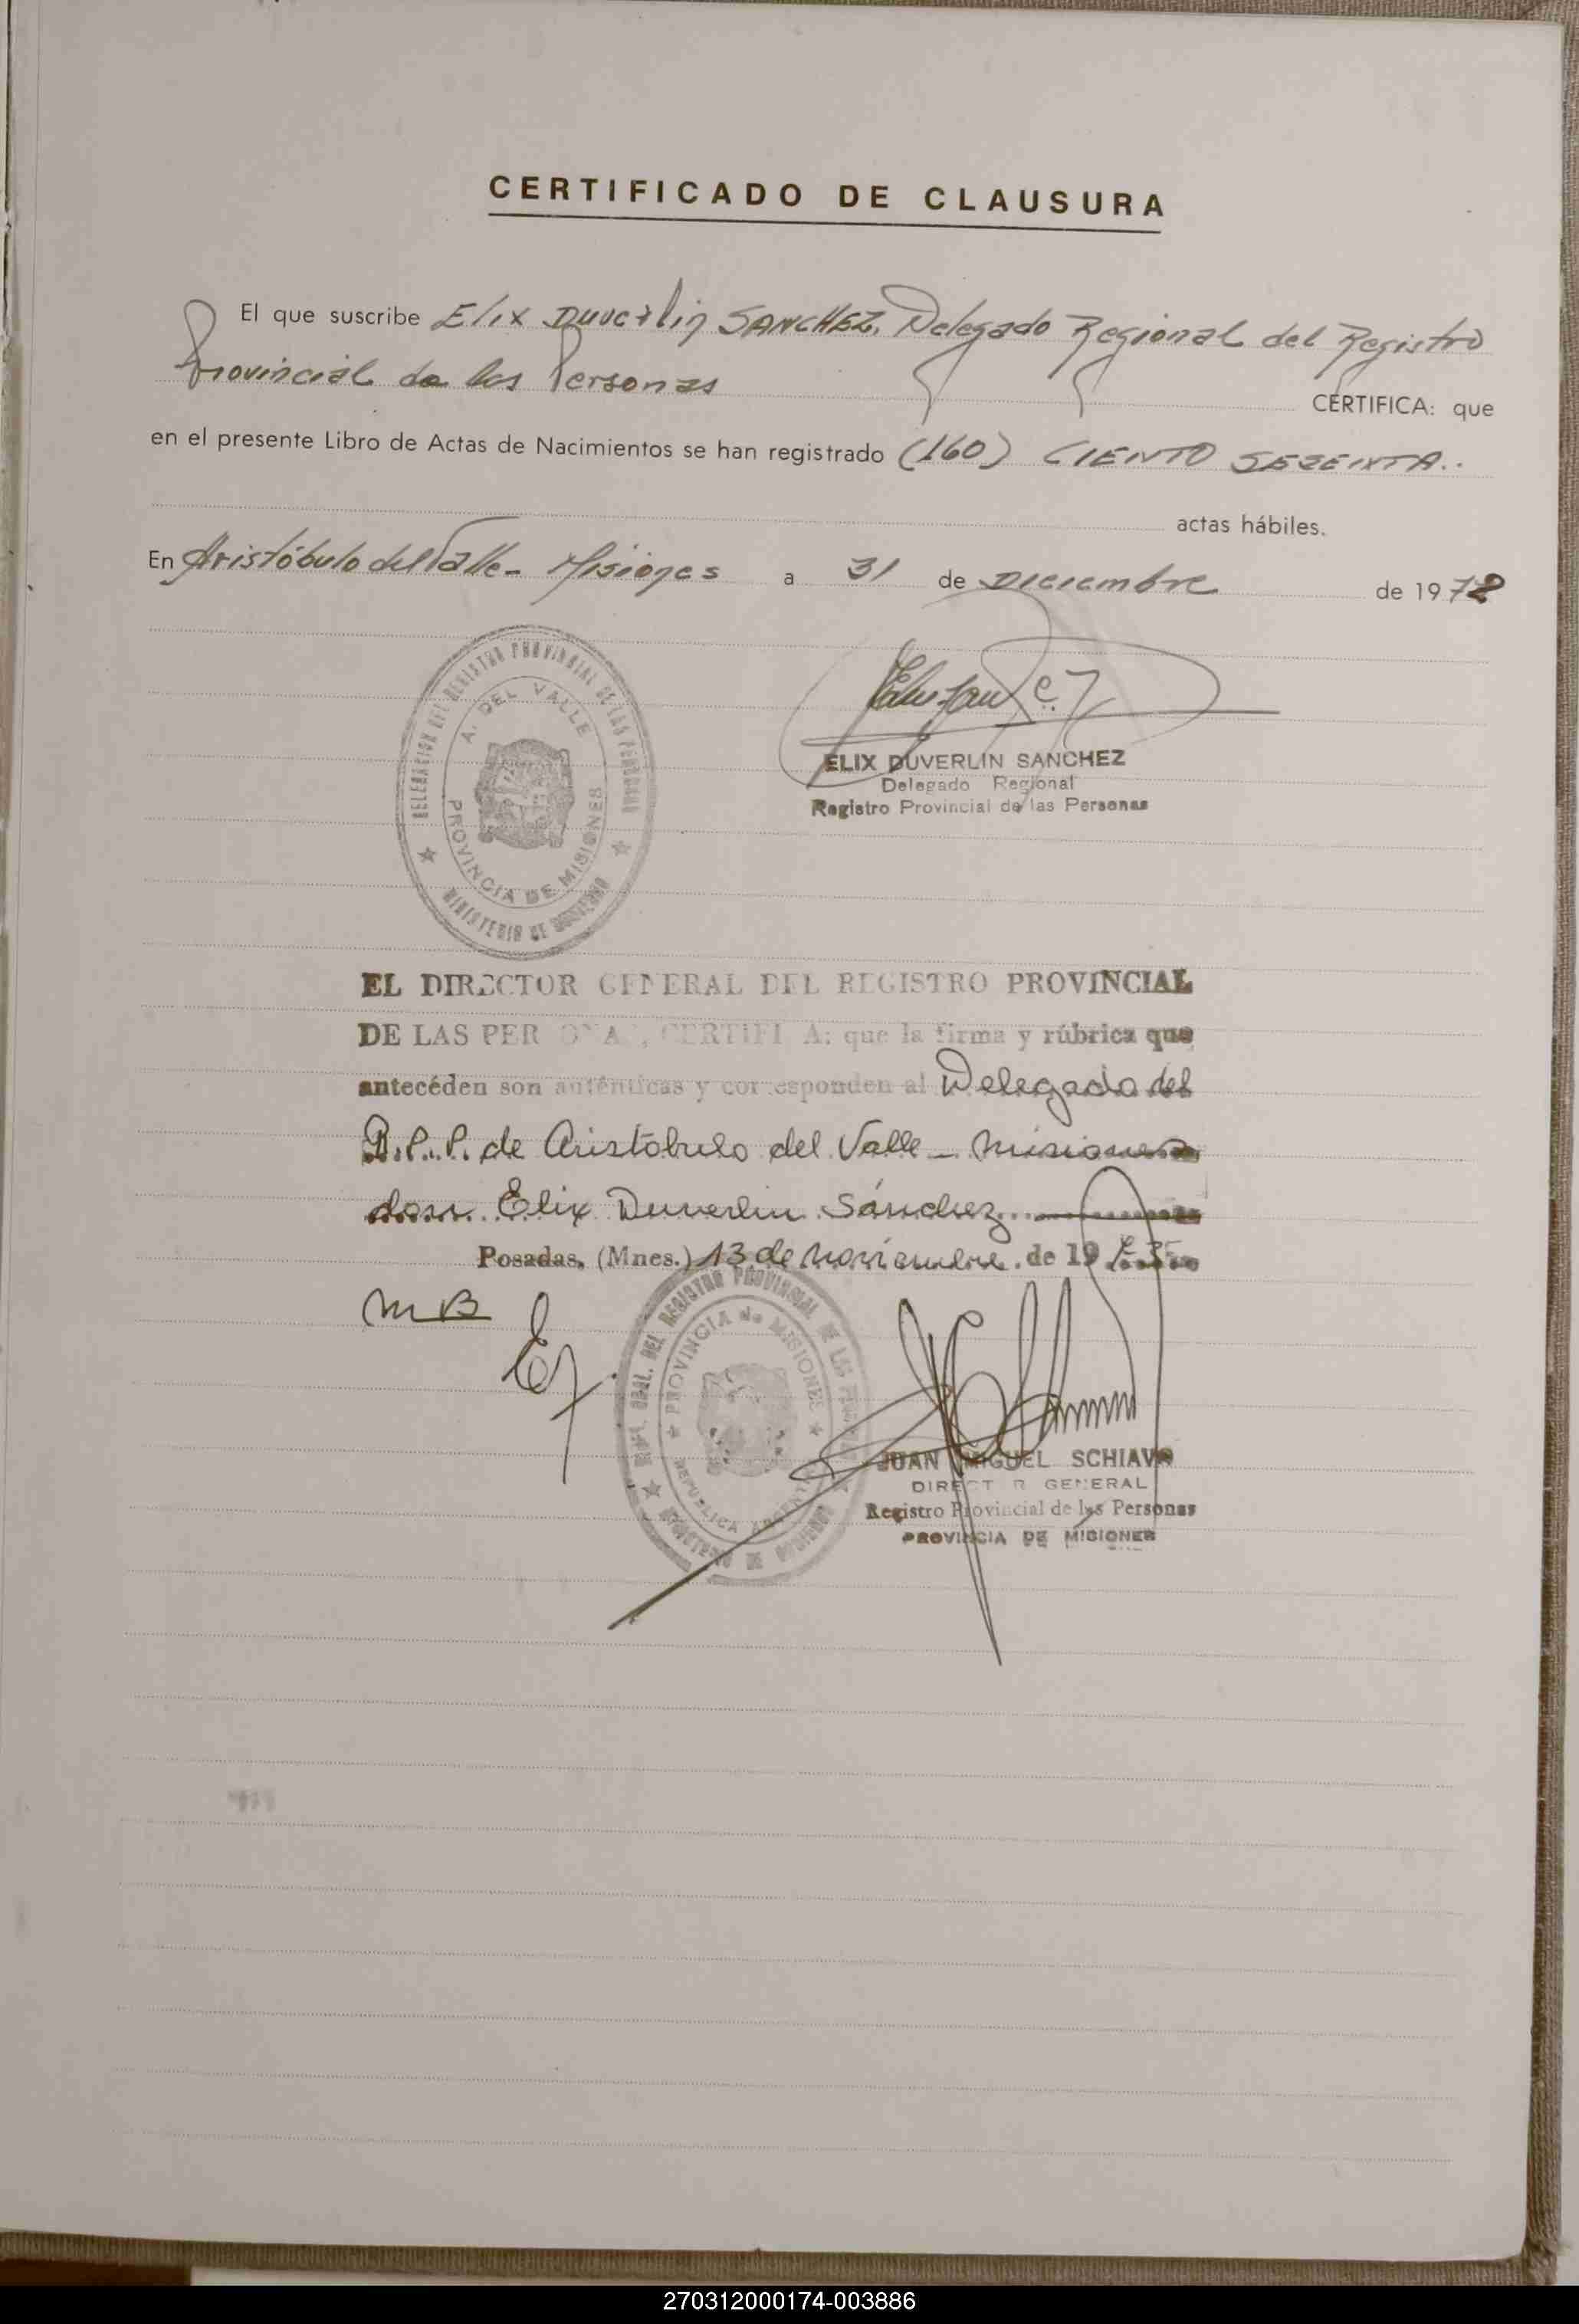 CERTIFICADO DE CLAUSURA
El que suscribe Elix Duverlin SANCHEZ. Delegado Regional del Registro
Provincial de las Personas
CERTIFICA: que
en el presente Libro de Actas de Nacimientos se han registrado (160) CIENTO SEZEINTA..
actas hábiles.
En Aristóbulo del Valle - Misiones a 31 de Diciembre de 1972
DELEGACION DEL REGISTRO PROVINCIAL DE LAS PERSONAS
A. DEL VALLE
PROVINCIA DE MISIONES
MINISTERIO DE GOBIERNO
ELIX DUVERLIN SANCHEZ
Delegado Regional
Registro Provincial de las Personas
EL DIRECTOR GENERAL DEL REGISTRO PROVINCIAL
DE LAS PERSONAS, CERTIFICA: que la firma y rúbrica que
anteceden son auténticas y corresponden al Delegado del
R.P.P. de Aristóbulo del Valle - Misiones
don Elix Duverlin Sánchez
Posadas, (Mnes.) 13 de noviembre de 1973
MB
GRAL. DEL REGISTRO PROVINCIAL DE LAS
PROVINCIA de MISIONES
REPUBLICA ARGENTINA
MINISTERIO DE GOBIERNO
JUAN MIGUEL SCHIAVO
DIRECTOR GENERAL
Registro Provincial de las Personas
PROVINCIA DE MISIONES
270312000174-003886